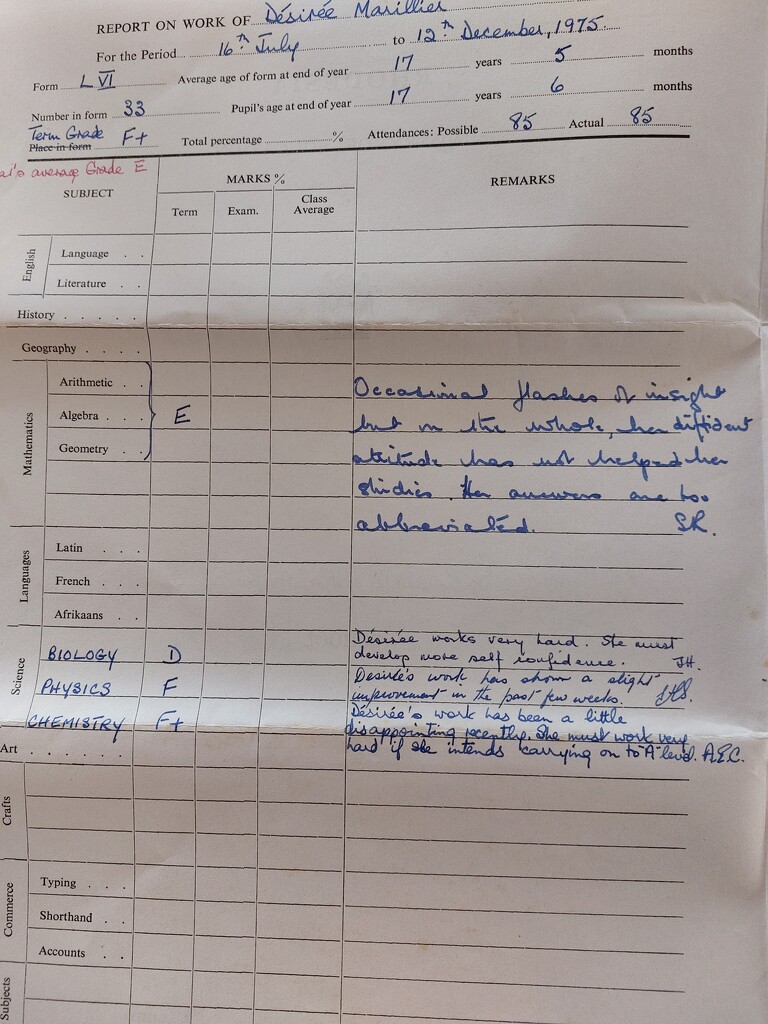 REPORT ON WORK OF Désirée Marillier
For the Period 16th July to 12th December, 1975.
Form L VI Average age of form at end of year 17 years 5 months
Number in form 33 Pupil's age at end of year 17 years 6 months
Term Grade F+ Total percentage % Attendances: Possible 85 Actual 85
Place in form
average Grade E
SUBJECT MARKS % REMARKS
Term Exam. Class Average
English
Language . .
Literature . .
History . . . .
Geography . . . .
Mathematics
Arithmetic . .
Algebra . . E
Geometry . .
Occasional flashes of insight
but on the whole, her diffident
attitude has not helped her
studies. Her answers are too
abbreviated. SR.
Languages
Latin . . .
French . . .
Afrikaans . .
Science
BIOLOGY D Désirée works very hard. She must
develop more self confidence. JH.
PHYSICS F Desirée's work has shown a slight
improvement in the past few weeks.
CHEMISTRY F+ Désirée's work has been a little
disappointing recently. She must work very
hard if she intends carrying on to "A" level. A.E.C.
Art . . . . .
Crafts
Commerce
Typing . . .
Shorthand . .
Accounts . .
Subjects